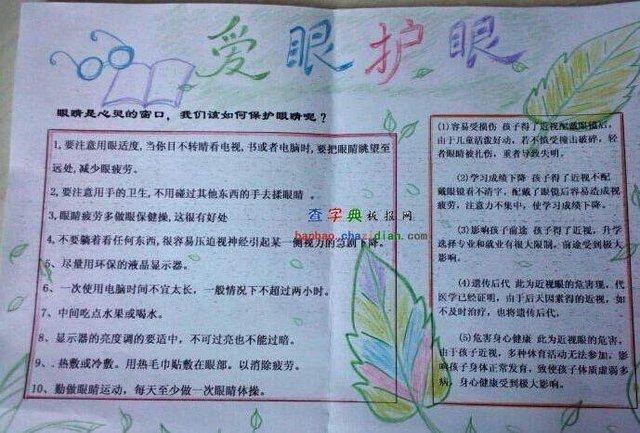 爱眼护眼
眼睛是心灵的窗口，我们该如何保护眼睛呢？
1,要注意用眼适度,当你目不转睛看电视,书或者电脑时,要把眼睛眺望至
远处,减少眼疲劳。
2,要注意用手的卫生,不用碰过其他东西的手去揉眼睛.
3,眼睛疲劳多做眼保健操,这很有好处
4,不要躺着看任何东西,很容易压迫视神经引起某一侧视力的急剧下降。
5、尽量用环保的液晶显示器。
6、一次使用电脑时间不宜太长，一般情况下不超过两小时。
7、中间吃点水果或喝水。
8、显示器的亮度调的要适中，不可过亮也不能过暗。
9、.热敷或冷敷。用热毛巾贴敷在眼部。以消除疲劳。
10、勤做眼睛运动，每天至少做一次眼睛体操。
(1)容易受损伤 孩子得了近视配戴眼镜后，
由于儿童活泼好动，若不慎受撞击破碎，轻
者眼睛被扎伤，重者导致失明。
(2)学习成绩下降 孩子得了近视不配
戴眼镜看不清字，配戴了眼镜后容易造成视
疲劳，注意力不集中，使学习成绩下降。
(3)影响孩子前途 孩子得了近视，升学
选择专业和就业有很大限制，前途受到极大
影响。
(4)遗传后代 此为近视眼的危害现，代
医学已经证明，由于后天因素得的近视，如
不及时治疗，也将遗传后代，
(5)危害身心健康 此为近视眼的危害，
由于孩子近视，多种体育活动无法参加，影
响孩子身体正常发育，致使孩子体质虚弱多
病，身心健康受到极大影响。
查字典板报网
banbao.chazidian.com